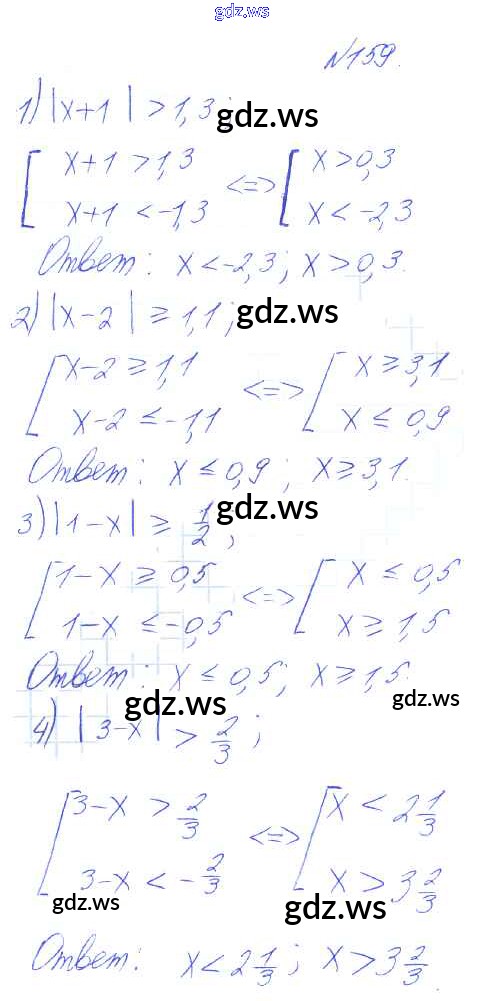 gdz.ws
№159.
1) |x+1| > 1,3; gdz.ws
[ x+1 > 1,3 <=> [ x > 0,3 gdz.ws
x+1 < -1,3 x < -2,3
Ответ: x < -2,3; x > 0,3.
2) |x-2| ≥ 1,1; gdz.ws
[ x-2 ≥ 1,1 <=> [ x ≥ 3,1
x-2 ≤ -1,1 x ≤ 0,9
Ответ: x ≤ 0,9; x ≥ 3,1.
3) |1-x| ≥ 1/2; gdz.ws
[ 1-x ≥ 0,5 <=> [ x ≤ 0,5
1-x ≤ -0,5 x ≥ 1,5
Ответ: x ≤ 0,5; x ≥ 1,5.
gdz.ws gdz.ws
4) |3-x| > 2/3;
[ 3-x > 2/3 <=> [ x < 2 1/3
3-x < -2/3 x > 3 2/3
gdz.ws gdz.ws
Ответ: x < 2 1/3; x > 3 2/3.